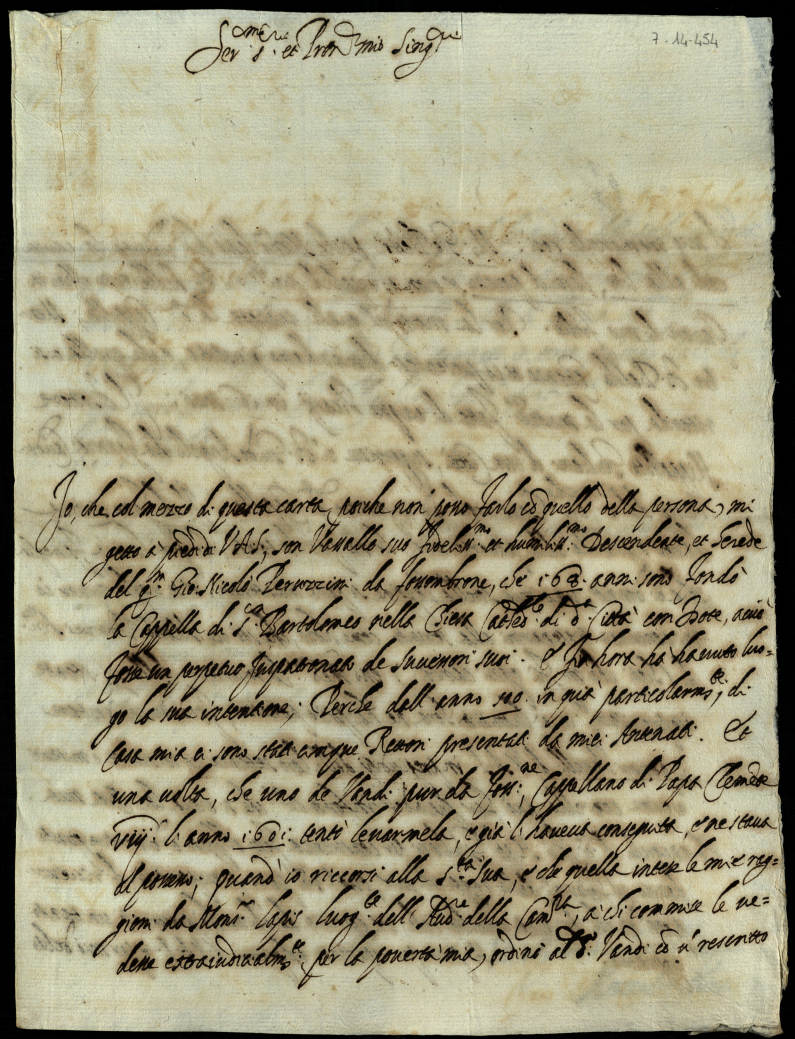 7-14-454
Ser.mo S.r et Pron mio Sing.re
Io, che col mezzo di questa carta, poiche non posso farlo cõ quello della persona, mi
getto à piedi di V.A.S., son Vassallo suo fideliss.mo et humiliss.mo Descendente, et herede
del q.m Gio: Nicolò Peruzzini da fossombrone, che 168. anni sono fondò
la Cappella di S.n Bartolomeo nella Chiesa Cathed.le di d.a Città con Dote, acciò
fosse un perpetuo Juspatronato de Successori suoi. et fin hora hà havuto luo=
go la sua intentione; Perche dall'anno in quà particolarm.te, di
Casa mia ci sono stati cinque Rettori presentati da miei Antenati. Et
una volta, che uno de Vandi pur da foss.ne, Cappellano di Papa Clemẽte
viij. l'anno 1601. tentò levarmela, e già l'haveva conseguita, e ne stava
al possesso; quand'io ricorsi alla S.tà Sua, e che quella intese le mie rag=
gioni da Mons.r luog.te dell'Aud.re della Cam.ra, a chi commise le ve=
desse estraiudicialm.te, per la povertà mia, ordinò al d.o Vandi cõ ũ rescritto